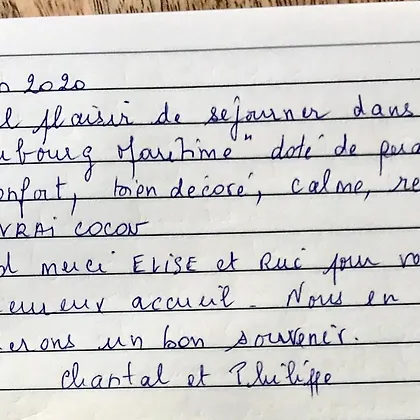 n 2020
el plaisir de sejourner dans
ubourg Maritime" doté de
onfort, bien décoré, calme, re
VRAi COCOV
d merci ELISE et pour vo
eureux accueil. Nous en
erons un bon souvenir.
Chantal et Philippe